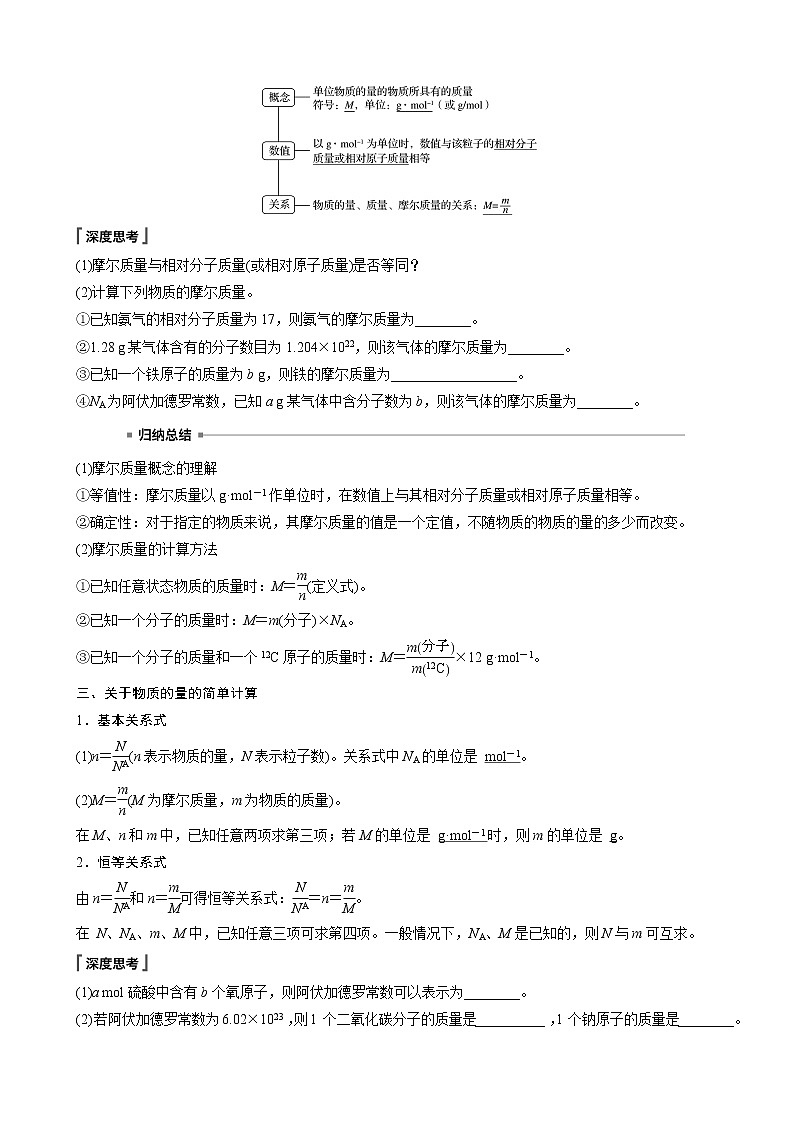 概念
单位物质的量的物质所具有的质量
符号：M，单位：g·mol⁻¹（或g/mol）
数值
以g·mol⁻¹为单位时，数值与该粒子的相对分子
质量或相对原子质量相等
关系
物质的量、质量、摩尔质量的关系：M=m/n
『深度思考』
(1)摩尔质量与相对分子质量(或相对原子质量)是否等同？
(2)计算下列物质的摩尔质量。
①已知氨气的相对分子质量为17，则氨气的摩尔质量为________。
②1.28 g某气体含有的分子数目为1.204×10²²，则该气体的摩尔质量为________。
③已知一个铁原子的质量为b g，则铁的摩尔质量为__________________。
④N_A为阿伏加德罗常数，已知a g某气体中含分子数为b，则该气体的摩尔质量为________。
归纳总结
(1)摩尔质量概念的理解
①等值性：摩尔质量以g·mol⁻¹作单位时，在数值上与其相对分子质量或相对原子质量相等。
②确定性：对于指定的物质来说，其摩尔质量的值是一个定值，不随物质的物质的量的多少而改变。
(2)摩尔质量的计算方法
①已知任意状态物质的质量时：M＝m/n(定义式)。
②已知一个分子的质量时：M＝m(分子)×N_A。
③已知一个分子的质量和一个¹²C原子的质量时：M＝m(分子)/m(¹²C)×12 g·mol⁻¹。
三、关于物质的量的简单计算
1．基本关系式
(1)n＝N/N_A(n表示物质的量，N表示粒子数)。关系式中N_A的单位是 mol⁻¹。
(2)M＝m/n(M为摩尔质量，m为物质的质量)。
在M、n和m中，已知任意两项求第三项；若M的单位是 g·mol⁻¹时，则m的单位是 g。
2．恒等关系式
由n＝N/N_A和n＝m/M可得恒等关系式：N/N_A＝n＝m/M。
在 N、N_A、m、M中，已知任意三项可求第四项。一般情况下，N_A、M是已知的，则N与m可互求。
『深度思考』
(1)a mol硫酸中含有b个氧原子，则阿伏加德罗常数可以表示为________。
(2)若阿伏加德罗常数为6.02×10²³，则1 个二氧化碳分子的质量是__________，1个钠原子的质量是________。